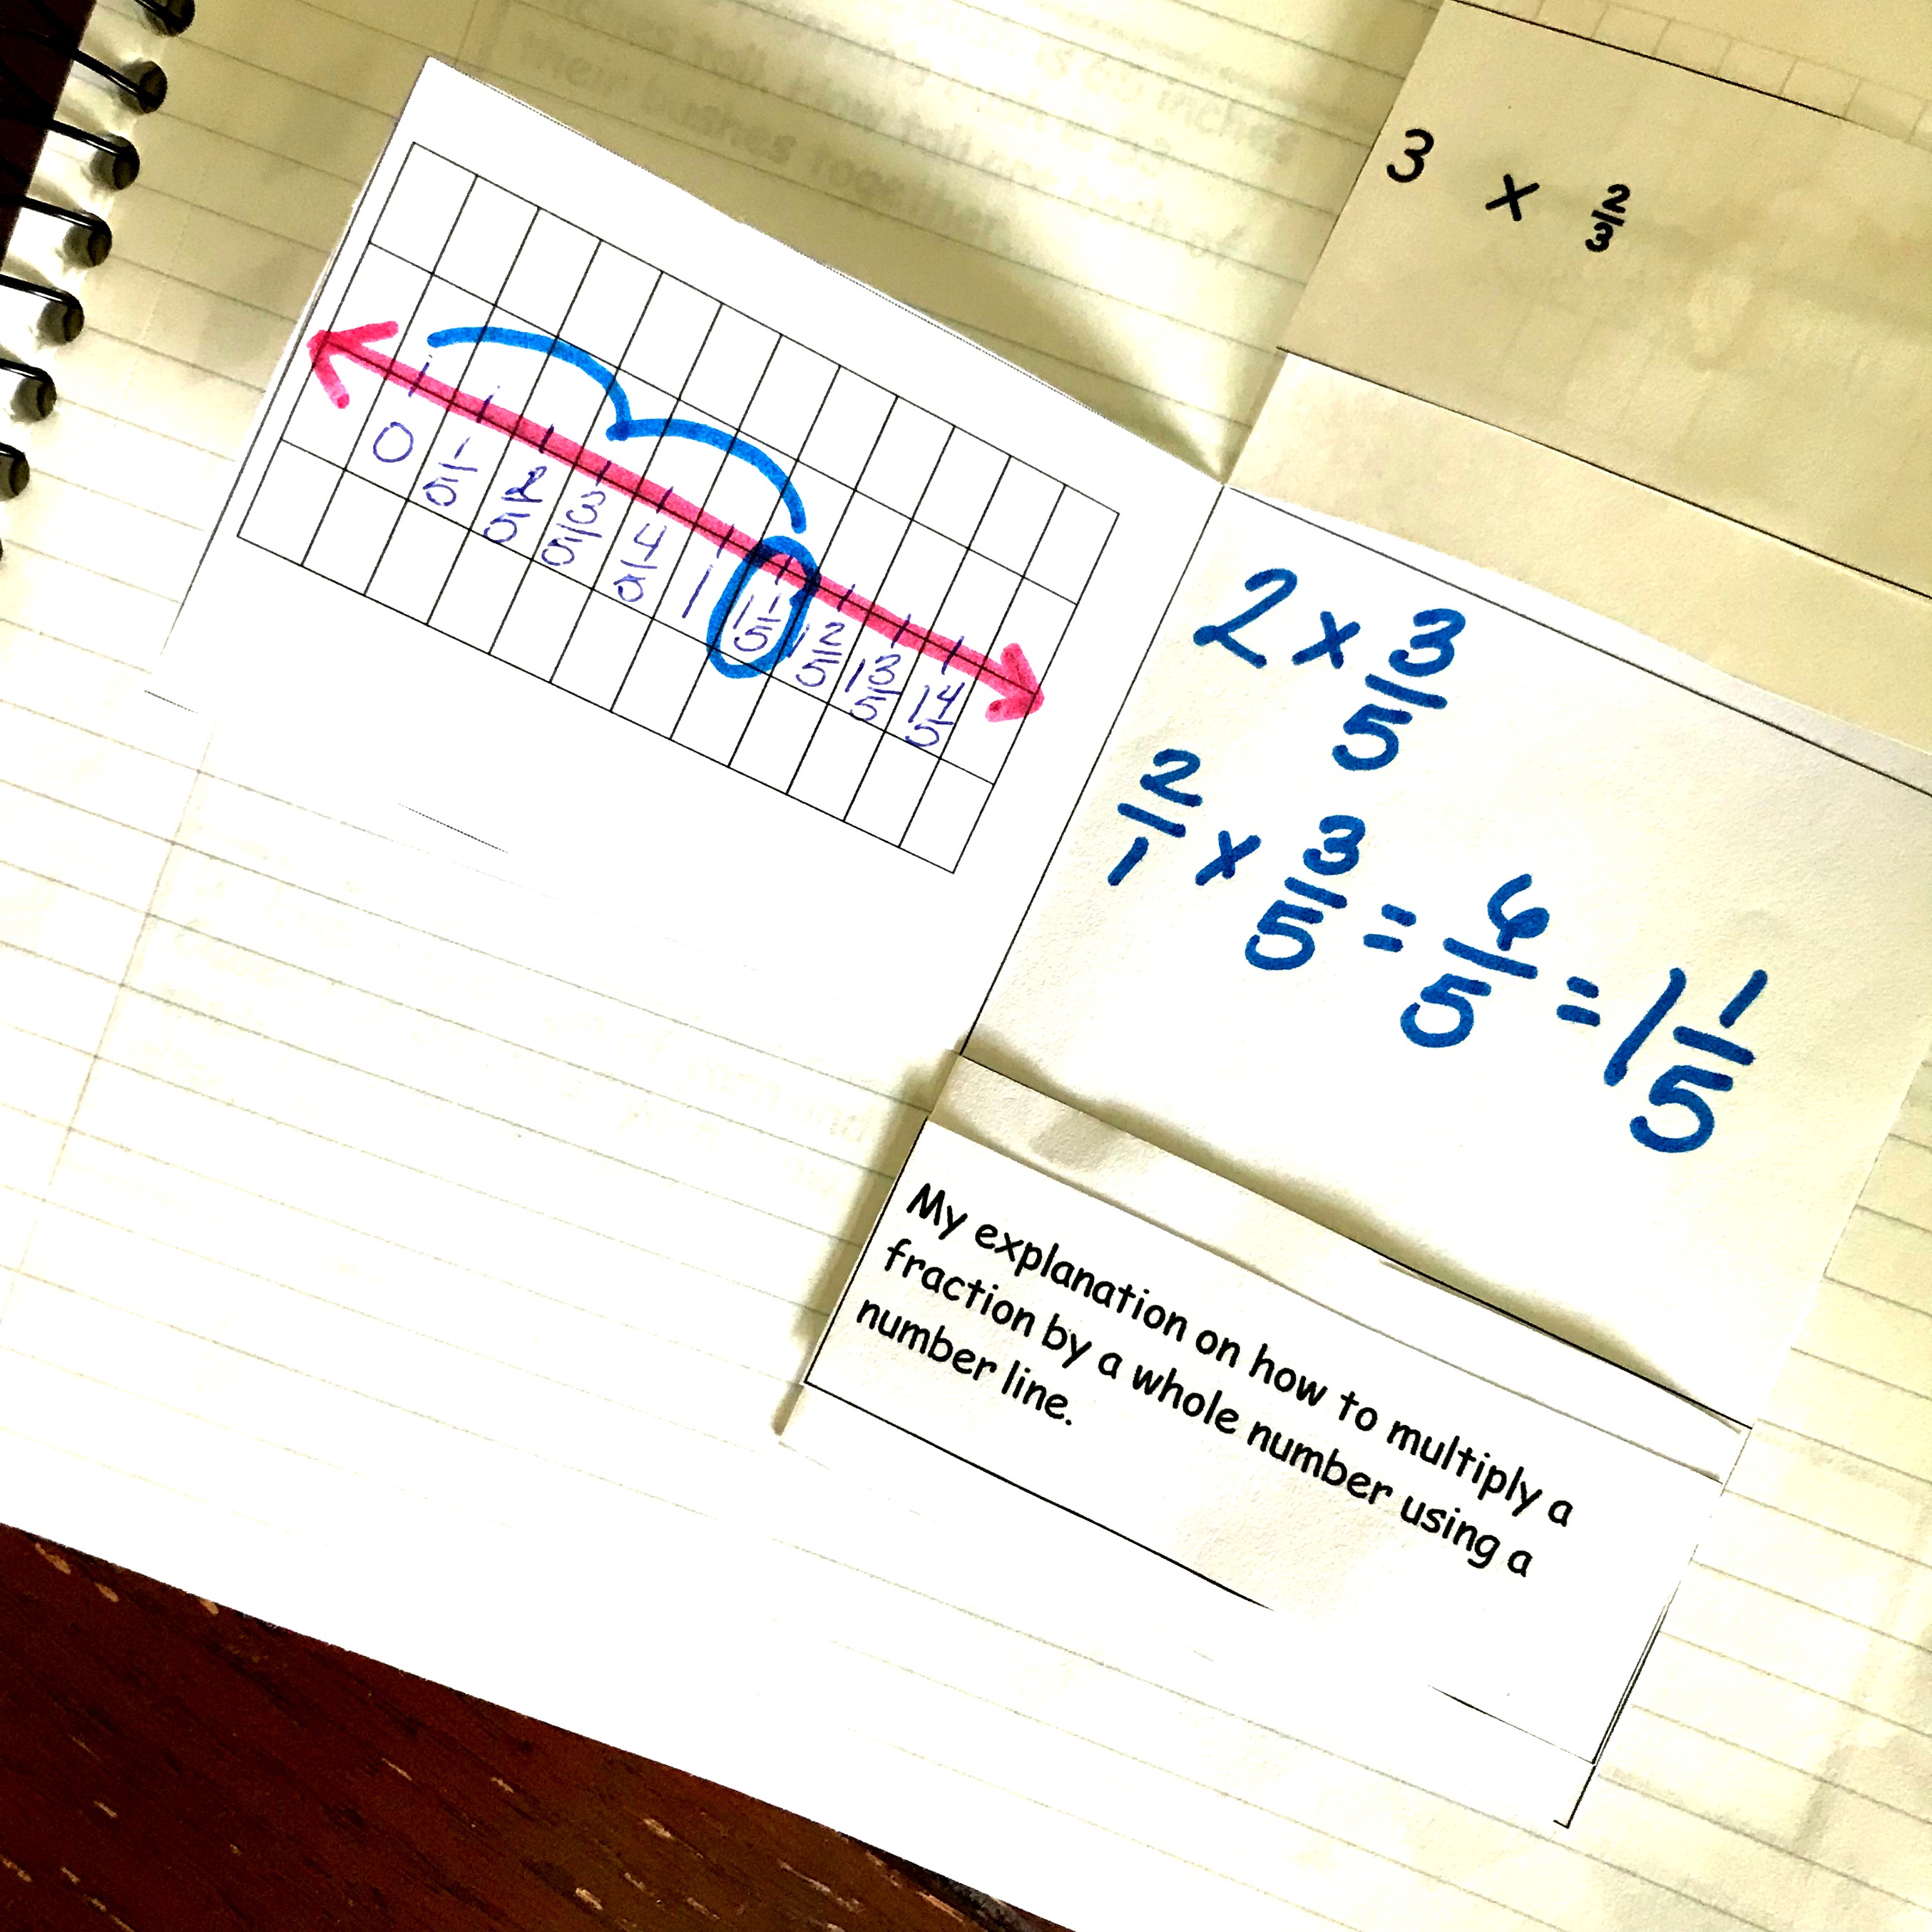 3 x 2/3
0 1/5 2/5 3/5 4/5 1 1 1/5 1 2/5 1 3/5 1 4/5
2 x 3/5
2/1 x 3/5 = 6/5 = 1 1/5
My explanation on how to multiply a
fraction by a whole number using a
number line.